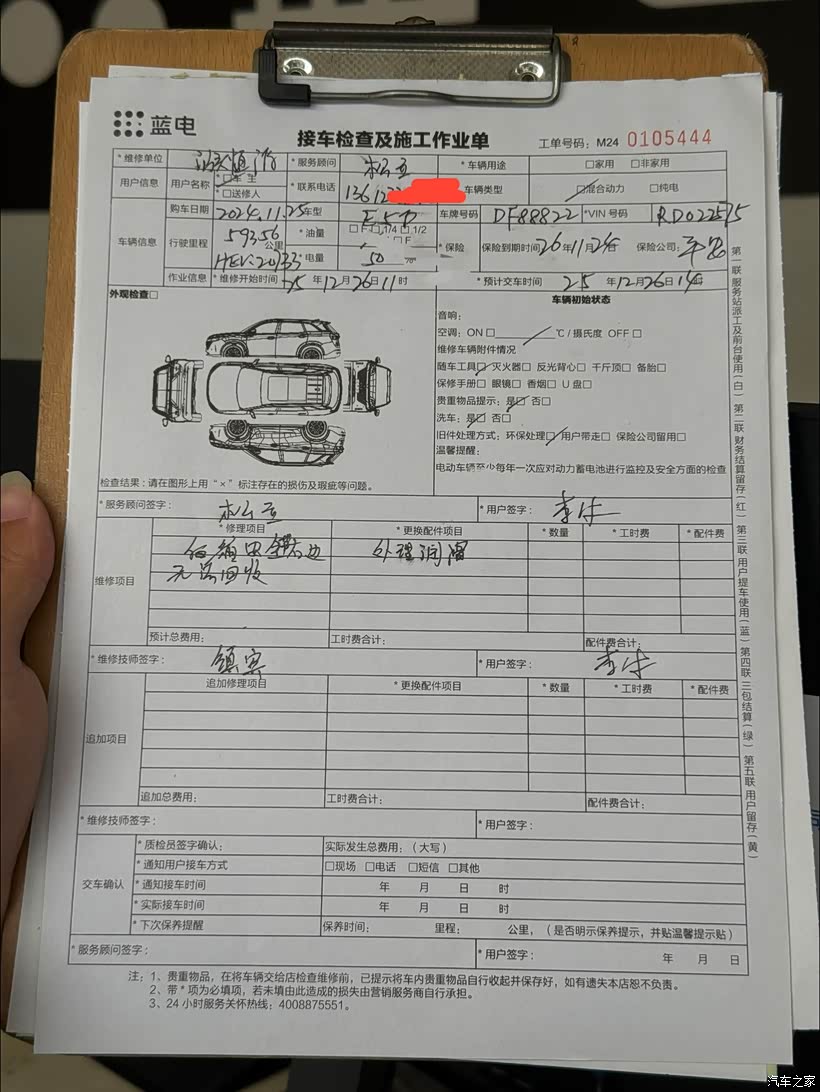 蓝电
接车检查及施工作业单
工单号码：M24 0105444
*维修单位 *服务顾问 *车辆用途 □家用 □非家用
用户信息 用户名称 *□车主 *□送修人 *联系电话 136122 车辆类型 □混合动力 □纯电
车辆信息 购车日期 2024.11.25 车型 车牌号码 DF88822 *VIN号码 RD022575
行驶里程 59356 公里 *油量 □F □1/4 □1/2 □F *保险 保险到期时间 26年11月 保险公司：平安
HEV:20133 *电量 50
作业信息 *维修开始时间 25年12月26日11时 *预计交车时间 25年12月26日14时
外观检查□
车辆初始状态
音响：
空调：ON □ ℃/摄氏度 OFF □
维修车辆附件情况
随车工具□ 灭火器□ 反光背心□ 千斤顶□ 备胎□
保修手册□ 眼镜□ 香烟□ U盘□
贵重物品提示：是□ 否□
洗车：是□ 否□
旧件处理方式：环保处理□ 用户带走□ 保险公司留用□
温馨提醒：
电动车辆至少每年一次应对动力蓄电池进行监控及安全方面的检查
检查结果：请在图形上用“×”标注存在的损伤及瑕疵等问题。
*服务顾问签字： *用户签字：
维修项目
*修理项目 *更换配件项目 *数量 *工时费 *配件费
外理润滑
无法回收
预计总费用： 工时费合计： 配件费合计：
*维修技师签字： *用户签字：
追加项目
追加修理项目 *更换配件项目 *数量 *工时费 *配件费
追加总费用： 工时费合计： 配件费合计：
*维修技师签字： *用户签字：
交车确认
*质检员签字确认： 实际发生总费用：（大写）
*通知用户接车方式 □现场 □电话 □短信 □其他
*通知接车时间 年 月 日 时
*实际接车时间 年 月 日 时
*下次保养提醒 保养时间： 里程： 公里，（是否明示保养提示，并贴温馨提示贴）
*服务顾问签字： *用户签字： 年 月 日
注：1、贵重物品，在将车辆交给店检查维修前，已提示将车内贵重物品自行收起并保存好，如有遗失本店恕不负责。
2、带*项为必填项，若未填由此造成的损失由营销服务商自行承担。
3、24小时服务关怀热线：4008875551。
第一联服务站派工及前台使用（白）第二联财务结算留存（红）第三联用户提车使用（蓝）第四联三包结算（绿）第五联用户留存（黄）
汽车之家